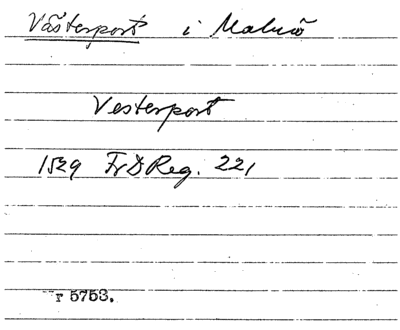 Västerport i Malmö
Vesterport
1529 FrDReg. 221
r 5753.